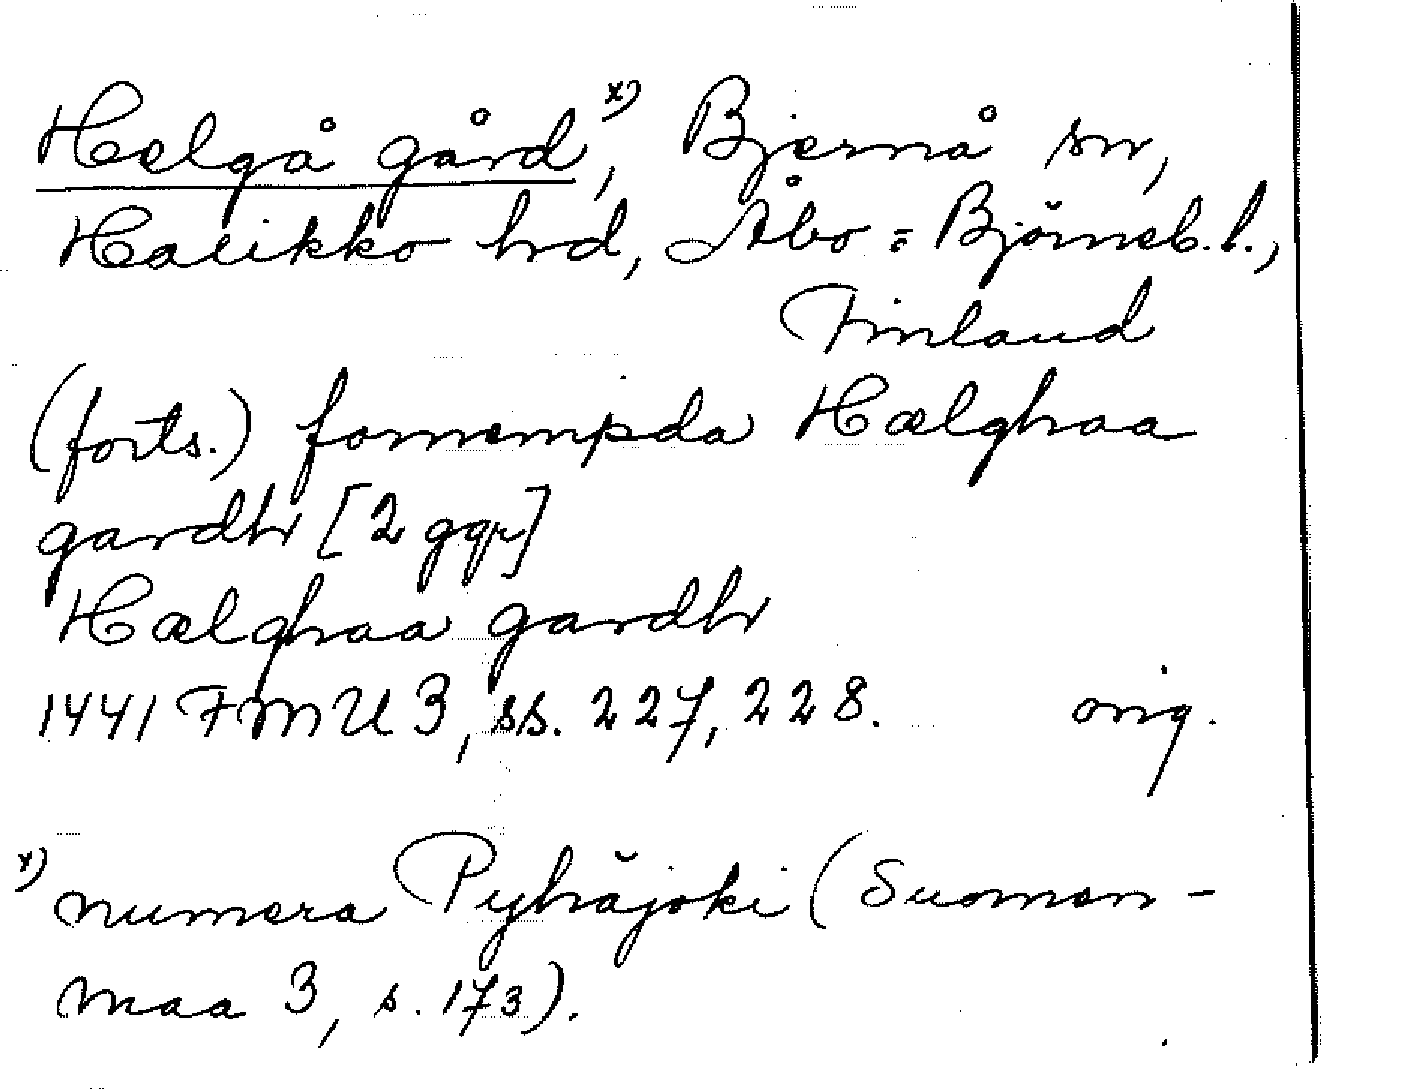 Helgå gård x), Bjernå sn,
Halikko hd, Åbo = Björneb. l.,
Finland
(forts.) fornempda Hælghaa
gardh [2 ggr]
Hælghaa gardh
1441 FMU 3, ss. 227, 228. orig.
x) numera Pyhäjoki (Suomen-
maa 3, s. 173).